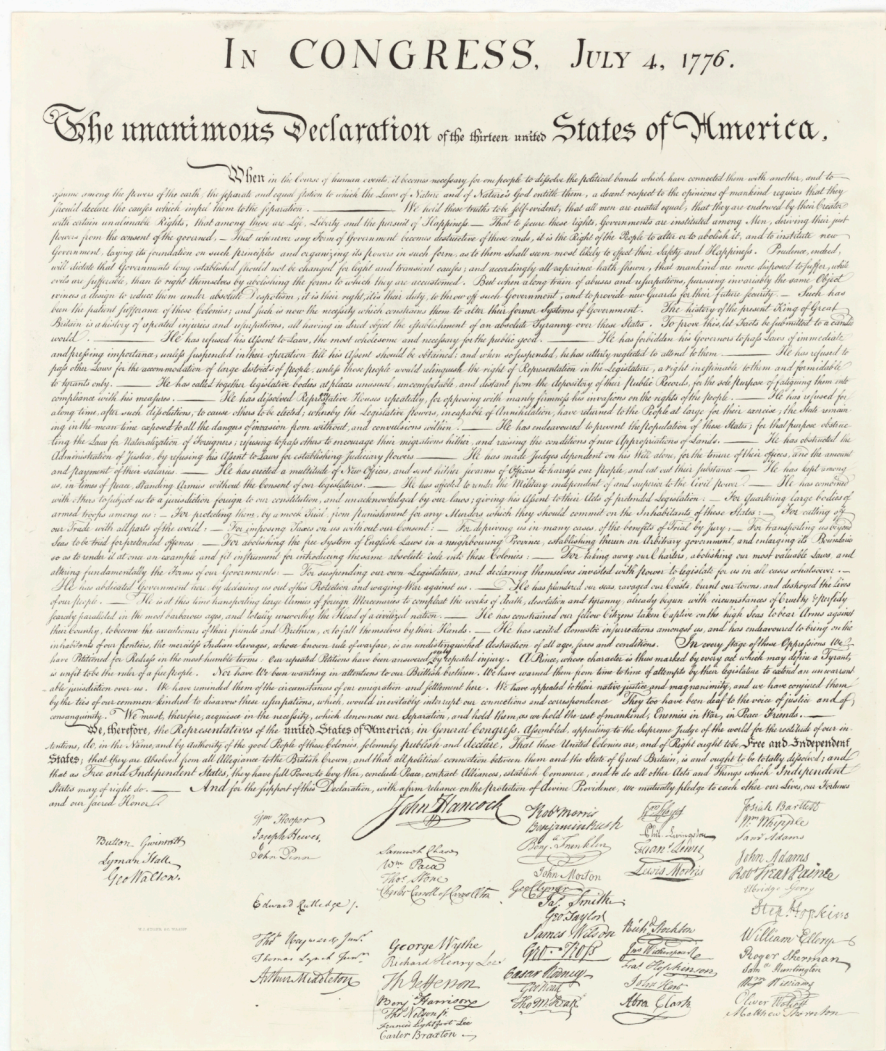 In CONGRESS, July 4, 1776.
The unanimous Declaration of the thirteen united States of America,
When in the Course of human events, it becomes necessary for one people to dissolve the political bands which have connected them with another, and to
assume among the powers of the earth, the separate and equal station to which the Laws of Nature and of Nature's God entitle them, a decent respect to the opinions of mankind requires that they
should declare the causes which impel them to the separation. — We hold these truths to be self-evident, that all men are created equal, that they are endowed by their Creator
with certain unalienable Rights, that among these are Life, Liberty and the pursuit of Happiness. — That to secure these rights, Governments are instituted among Men, deriving their just
powers from the consent of the governed, — That whenever any Form of Government becomes destructive of these ends, it is the Right of the People to alter or to abolish it, and to institute new
Government, laying its foundation on such principles and organizing its powers in such form, as to them shall seem most likely to effect their Safety and Happiness. Prudence, indeed,
will dictate that Governments long established should not be changed for light and transient causes; and accordingly all experience hath shewn, that mankind are more disposed to suffer, while
evils are sufferable, than to right themselves by abolishing the forms to which they are accustomed. But when a long train of abuses and usurpations, pursuing invariably the same Object
evinces a design to reduce them under absolute Despotism, it is their right, it is their duty, to throw off such Government, and to provide new Guards for their future security. — Such has
been the patient sufferance of these Colonies; and such is now the necessity which constrains them to alter their former Systems of Government. The history of the present King of Great
Britain is a history of repeated injuries and usurpations, all having in direct object the establishment of an absolute Tyranny over these States. To prove this, let Facts be submitted to a candid
world. — He has refused his Assent to Laws, the most wholesome and necessary for the public good. — He has forbidden his Governors to pass Laws of immediate
and pressing importance, unless suspended in their operation till his Assent should be obtained; and when so suspended, he has utterly neglected to attend to them. — He has refused to
pass other Laws for the accommodation of large districts of people, unless those people would relinquish the right of Representation in the Legislature, a right inestimable to them and formidable
to tyrants only. — He has called together legislative bodies at places unusual, uncomfortable, and distant from the depository of their public Records, for the sole purpose of fatiguing them into
compliance with his measures. — He has dissolved Representative Houses repeatedly, for opposing with manly firmness his invasions on the rights of the people. — He has refused for
a long time, after such dissolutions, to cause others to be elected; whereby the Legislative powers, incapable of Annihilation, have returned to the People at large for their exercise; the State remain-
ing in the mean time exposed to all the dangers of invasion from without, and convulsions within. — He has endeavoured to prevent the population of these States; for that purpose obstruc-
ting the Laws for Naturalization of Foreigners; refusing to pass others to encourage their migrations hither, and raising the conditions of new Appropriations of Lands. — He has obstructed the
Administration of Justice, by refusing his Assent to Laws for establishing Judiciary powers. — He has made Judges dependent on his Will alone, for the tenure of their offices, and the amount
and payment of their salaries. — He has erected a multitude of New Offices, and sent hither swarms of Officers to harrass our people, and eat out their substance. — He has kept among
us, in times of peace, Standing Armies without the Consent of our legislatures. — He has affected to render the Military independent of and superior to the Civil power. — He has combined
with others to subject us to a jurisdiction foreign to our constitution, and unacknowledged by our laws; giving his Assent to their Acts of pretended Legislation: — For Quartering large bodies of
armed troops among us: — For protecting them, by a mock Trial, from punishment for any Murders which they should commit on the Inhabitants of these States: — For cutting off
our Trade with all parts of the world: — For imposing Taxes on us without our Consent: — For depriving us in many cases, of the benefits of Trial by Jury: — For transporting us beyond
Seas to be tried for pretended offences — For abolishing the free System of English Laws in a neighbouring Province, establishing therein an Arbitrary government, and enlarging its Boundaries
so as to render it at once an example and fit instrument for introducing the same absolute rule into these Colonies: — For taking away our Charters, abolishing our most valuable Laws, and
altering fundamentally the Forms of our Governments: — For suspending our own Legislatures, and declaring themselves invested with power to legislate for us in all cases whatsoever. —
He has abdicated Government here, by declaring us out of his Protection and waging War against us. — He has plundered our seas, ravaged our Coasts, burnt our towns, and destroyed the lives
of our people. — He is at this time transporting large Armies of foreign Mercenaries to compleat the works of death, desolation and tyranny, already begun with circumstances of Cruelty & perfidy
scarcely paralleled in the most barbarous ages, and totally unworthy the Head of a civilized nation. — He has constrained our fellow Citizens taken Captive on the high Seas to bear Arms against
their Country, to become the executioners of their friends and Brethren, or to fall themselves by their Hands. — He has excited domestic insurrections amongst us, and has endeavoured to bring on the
inhabitants of our frontiers, the merciless Indian Savages, whose known rule of warfare, is an undistinguished destruction of all ages, sexes and conditions. In every stage of these Oppressions We
have Petitioned for Redress in the most humble terms: Our repeated Petitions have been answered only by repeated injury. A Prince, whose character is thus marked by every act which may define a Tyrant,
is unfit to be the ruler of a free people. Nor have We been wanting in attentions to our Brittish brethren. We have warned them from time to time of attempts by their legislature to extend an unwarrant-
able jurisdiction over us. We have reminded them of the circumstances of our emigration and settlement here. We have appealed to their native justice and magnanimity, and we have conjured them
by the ties of our common kindred to disavow these usurpations, which, would inevitably interrupt our connections and correspondence. They too have been deaf to the voice of justice and of
consanguinity. We must, therefore, acquiesce in the necessity, which denounces our Separation, and hold them, as we hold the rest of mankind, Enemies in War, in Peace Friends. —
We, therefore, the Representatives of the united States of America, in General Congress, Assembled, appealing to the Supreme Judge of the world for the rectitude of our in-
tentions, do, in the Name, and by Authority of the good People of these Colonies, solemnly publish and declare, That these United Colonies are, and of Right ought to be Free and Independent
States; that they are Absolved from all Allegiance to the British Crown, and that all political connection between them and the State of Great Britain, is and ought to be totally dissolved; and
that as Free and Independent States, they have full Power to levy War, conclude Peace, contract Alliances, establish Commerce, and to do all other Acts and Things which Independent
States may of right do. — And for the support of this Declaration, with a firm reliance on the protection of divine Providence, we mutually pledge to each other our Lives, our Fortunes
and our sacred Honor.
Button Gwinnett
Lyman Hall
Geo Walton.
Wm Hooper
Joseph Hewes,
John Penn
Edward Rutledge Jr.
Thos Heyward Junr.
Thomas Lynch Junr.
Arthur Middleton
John Hancock
Samuel Chase
Wm Paca
Thos Stone
Charles Carroll of Carrollton
George Wythe
Richard Henry Lee
Th Jefferson
Benj Harrison
Thos Nelson jr.
Francis Lightfoot Lee
Carter Braxton
Robt Morris
Benjamin Rush
Benj. Franklin
John Morton
Geo Clymer
Jas. Smith
Geo. Taylor
James Wilson
Geo. Ross
Caesar Rodney
Geo Read
Tho M:Kean
Wm Floyd
Phil. Livingston
Frans. Lewis
Lewis Morris
Richd. Stockton
Jno Witherspoon
Fras. Hopkinson
John Hart
Abra Clark
Josiah Bartlett
Wm. Whipple
Saml Adams
John Adams
Robt Treat Paine
Elbridge Gerry
Step. Hopkins
William Ellery
Roger Sherman
Saml Huntington
Wm. Williams
Oliver Wolcott
Matthew Thornton